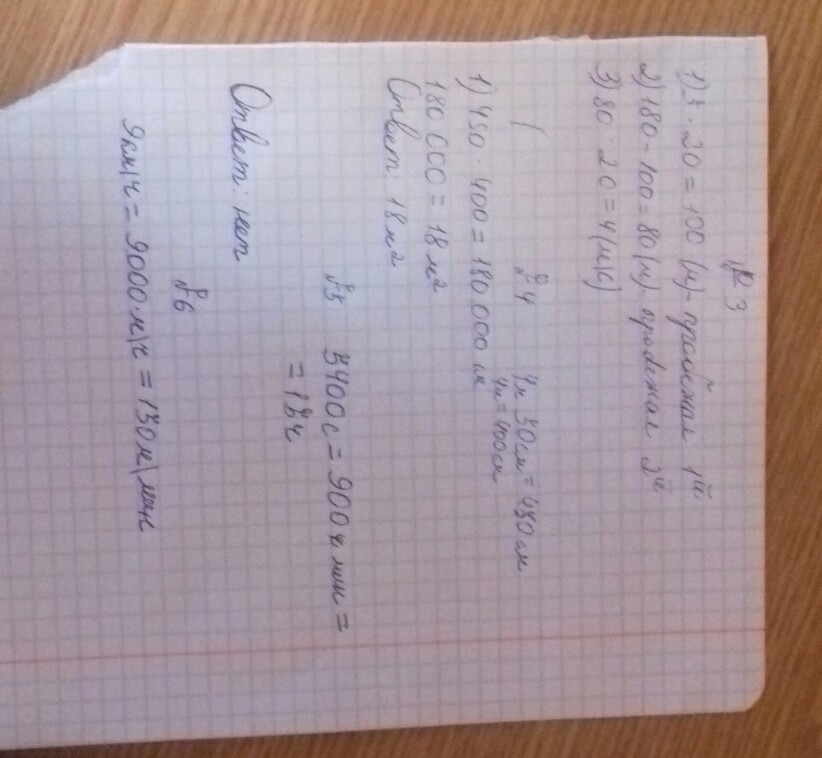 № 3
1) 5 · 20 = 100 (м) - пробежал 1й
2) 180 - 100 = 80 (м) - пробежал 2й
3) 80 · 20 = 4 (м/с)
№ 4 4м 50см = 450 см
4м = 400см
1) 450 · 400 = 180 000 см
180 000 = 18 м²
Ответ: 18 м²
№5 5400с = 900 мин =
= 15ч
Ответ: нет
№6
9км/ч = 9000 м/ч = 150м/мин